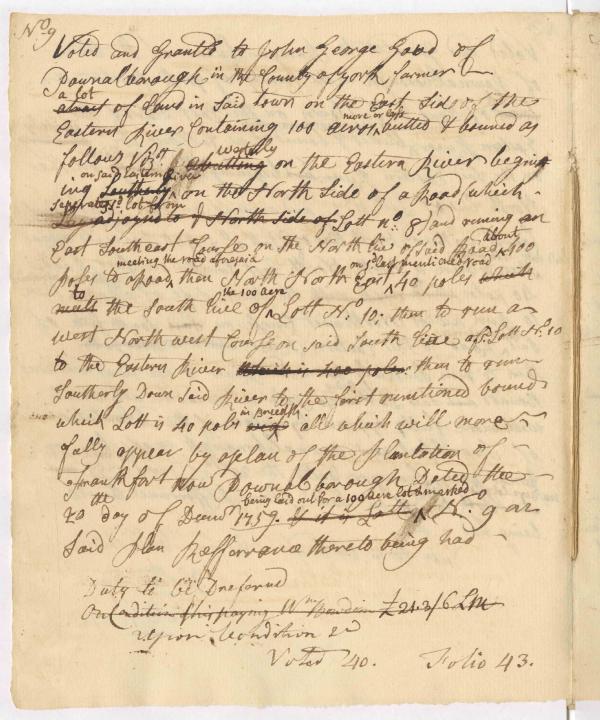 No 9
Voted and Granted to John George Goud of
Pownalborough in the County of York farmer
a lot
of Land in Said town on the East Side of the
Eastern River Containing 100 acres more or less butted & bounded as
follows Vizt westerly
butting on the Eastern River beginn
on said Eastern River
ing Southerly on the North Side of a Road (which
seperates sd lot from
Lay adjoyns to North Side of Lott no. 8) and runing an
East Southeast Course on the North line of Said Road about 400
meeting the road afores'd on sd last mentioned road
poles to a Road then North North East 40 poles which
to the 100 acre
meets the South line of Lott No. 10; then to run a
West North west Course on Said South line of sd Lott No. 10
to the Eastern River which is 400 poles then to run
Southerly Down Said River to the first mentioned bound
which Lott is 40 poles wide in breadth all which will more
fully appear by a plan of the Plantation of
Frankfort now Pownalborough Dated the
the being laid out for a 100 acre lot & marked
20 day of Decemr 1759. & it is Lott N. 9 on
Said plan Refferrance thereto being had
Duty to be Preferred
On Condition of his paying Wm Bowdoin £
upon Condition &c
Voted 40. Folio 43.